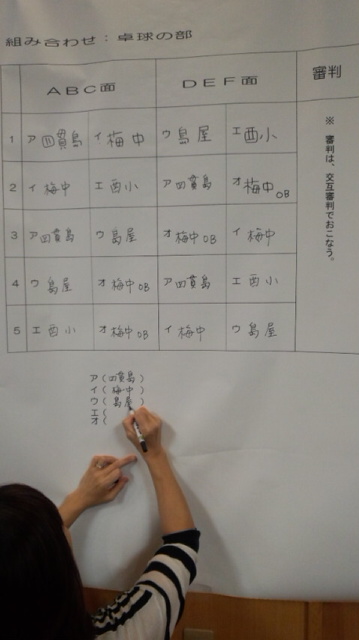 組み合わせ：卓球の部
ＡＢＣ面 ＤＥＦ面 審判
1 ア四貫島 イ梅中 ウ島屋 エ酉小
2 イ梅中 エ酉小 ア四貫島 オ梅中OB
3 ア四貫島 ウ島屋 オ梅中OB イ梅中
4 ウ島屋 オ梅中OB ア四貫島 エ酉小
5 エ酉小 オ梅中OB イ梅中 ウ島屋
※ 審判は、交互審判でおこなう。
ア（四貫島）
イ（梅中）
ウ（島屋）
エ（
オ（